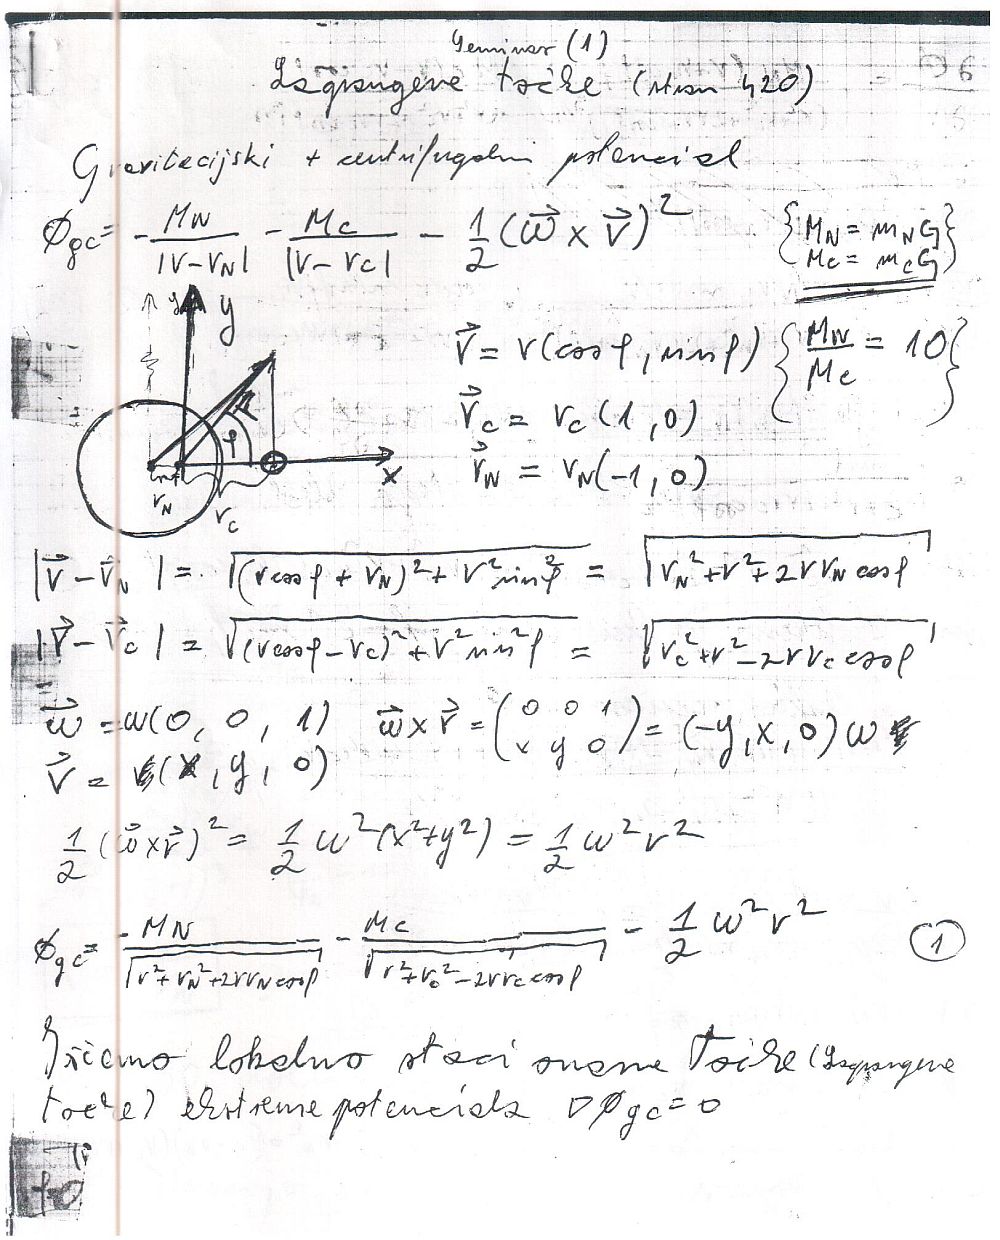 Seminar (1)
Lagrangeve točke (stran 420)
Gravitacijski + centrifugalni potencial
Φgc = - MN/|r-rN| - Mc/|r-rc| - 1/2 (ω⃗ x r⃗)²
{MN = mNG
Mc = mcG}
y
φ
x
rN
rc
r⃗ = r(cosφ, sinφ) {MN/Mc = 10}
r⃗c = rc(1, 0)
r⃗N = rN(-1, 0)
|r⃗ - r⃗N| = √((rcosφ + rN)² + r²sin²φ) = √(rN² + r² + 2rrN cosφ)
|r⃗ - r⃗c| = √((rcosφ - rc)² + r²sin²φ) = √(rc² + r² - 2rrc cosφ)
ω⃗ = ω(0, 0, 1) ω⃗ x r⃗ = (0 0 1 / x y 0) = (-y, x, 0) ω
r⃗ = (x, y, 0)
1/2 (ω⃗ x r⃗)² = 1/2 ω²(x²+y²) = 1/2 ω² r²
Φgc = - MN/√(r² + rN² + 2rrN cosφ) - Mc/√(r² + rc² - 2rrc cosφ) - 1/2 ω² r² (1)
Iščemo lokalno stacionarne točke (Lagrangeve
točke) ekstreme potenciala ∇Φgc = 0